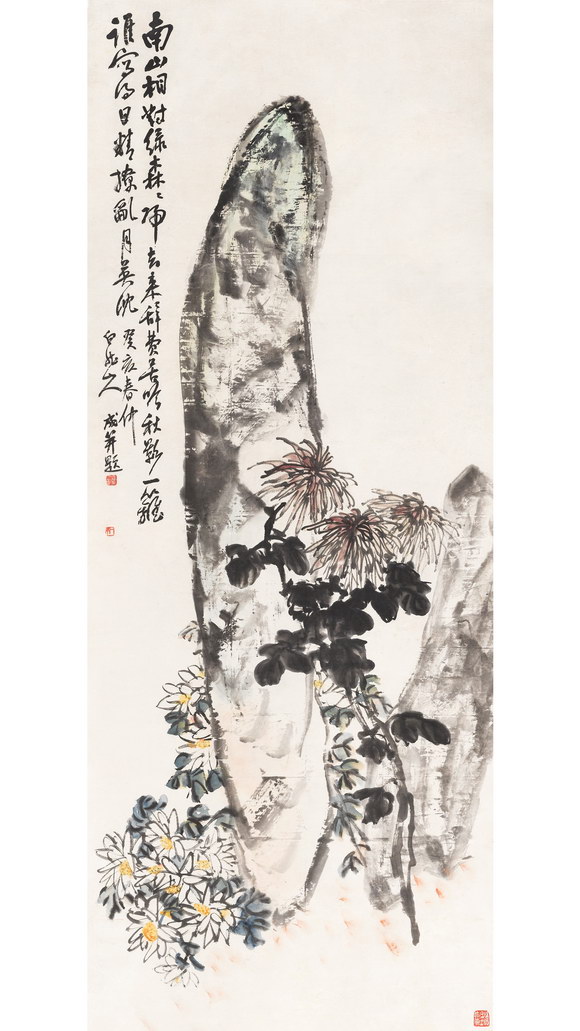 南山相對綠森〻歸去來辭費苦吟秋影一籬
誰寫得日精撩亂月英沈
癸亥春仲
白龍山人成并題